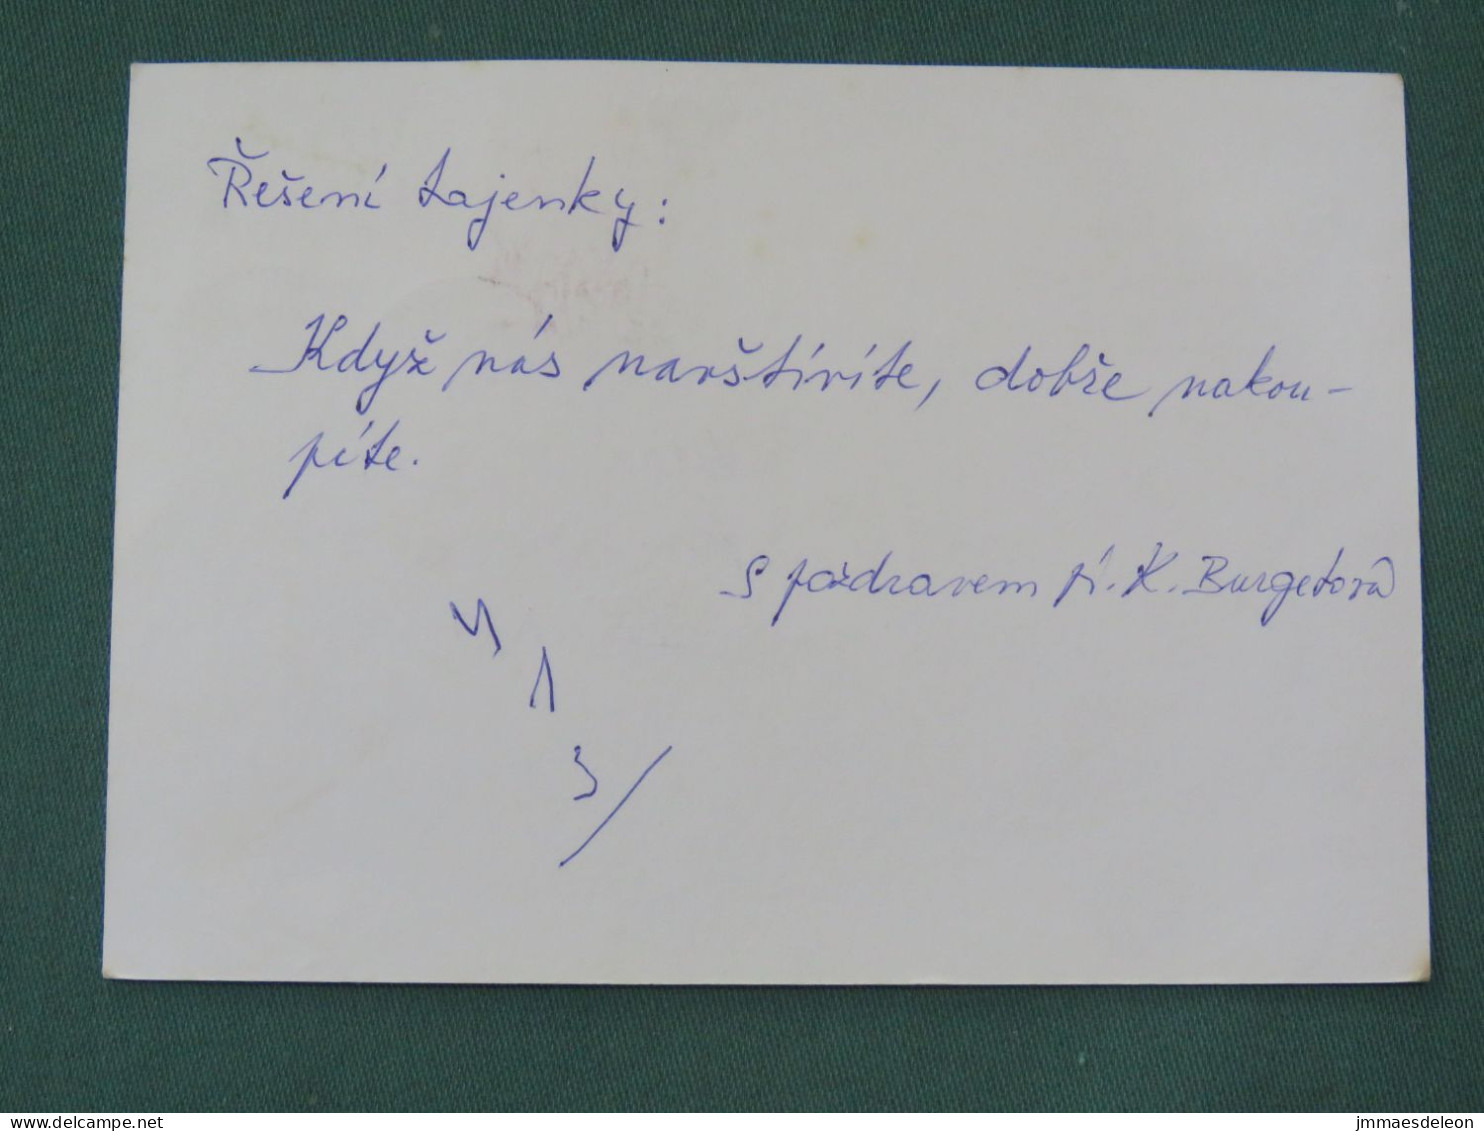 Řešení tajenky:
Když nás navštívíte, dobře nakou-
píte.
S pozdravem pí. K. Burgetová
4
1
3/
www.delcampe.net
jmmaesdeleon